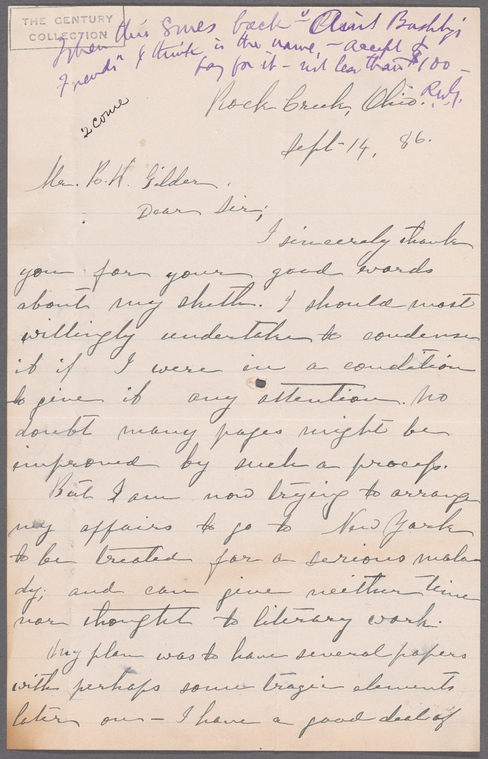 THE CENTURY
COLLECTION
When this comes back "Aunt Bashby's
Friends" I think is the name, – accept &
pay for it – not less than $100 –
R.W.G.
2 come
Rock Creek, Ohio.
Sept 14, 86.
Mr. R. W. Gilder.
Dear Sir;
I sincerely thank
you for your good words
about my sketch. I should most
willingly undertake to condense
it if I were in a condition
to give it any attention. No
doubt many pages might be
improved by such a process.
But I am now trying to arrange
my affairs to go to New York
to be treated for a serious mala-
dy; and can give neither time
nor thought to literary work.
My plan was to have several papers
with perhaps some tragic elements
later on – I have a good deal of